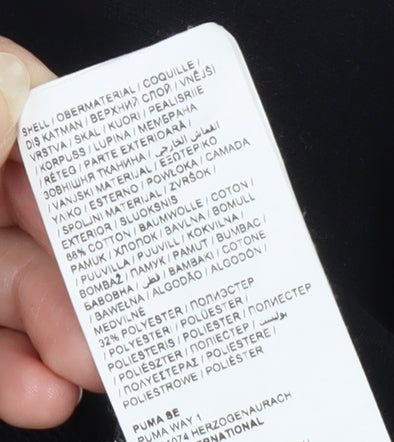 SHELL / OBERMATERIAL / COQUILLE /
DIŞ KATMAN / ВЕРХНИЙ СЛОЙ / VNĚJŠÍ
VRSTVA / SKAL / KUORI / PEALISRIIE
/ KORPUSS / LUPINA / МЕМБРАНА
/ RÉTEG / PARTE EXTERIORARĂ /
ЗОВНІШНЯ ТКАНИНА / القماش الخارجي
/ VANJSKI MATERIJAL / ΕΞΩΤΕΡΙΚΟ
ΥΛΙΚΟ / ESTERNO / POWŁOKA / CAMADA
/ SPOLJNI MATERIJAL / ZVRŠOK /
EXTERIOR / SLUOKSNIS
68% COTTON / BAUMWOLLE / COTON /
PAMUK / ХЛОПОК / BAVLNA / BOMULL
/ PUUVILLA / PUUVILL / KOKVILNA /
BOMBAŽ / ПАМУК / PAMUT / BUMBAC /
БАВОВНА / قطن / ΒΑΜΒΑΚΙ / COTONE
/ BAWEŁNA / ALGODÃO / ALGODÓN /
MEDVILNĖ
32% POLYESTER / ПОЛИЭСТЕР
/ POLYESTERI / POLÜESTER /
POLIESTERIS / POLIESTER / ПОЛИЕСТЕР
/ POLIÉSZTER / ПОЛІЕСТЕР / بوليستر
/ ΠΟΛΥΕΣΤΕΡΑΣ / POLIESTERE /
POLIESTROWE / POLIÉSTER
PUMA SE
PUMA WAY 1
91074 HERZOGENAURACH
INTERNATIONAL